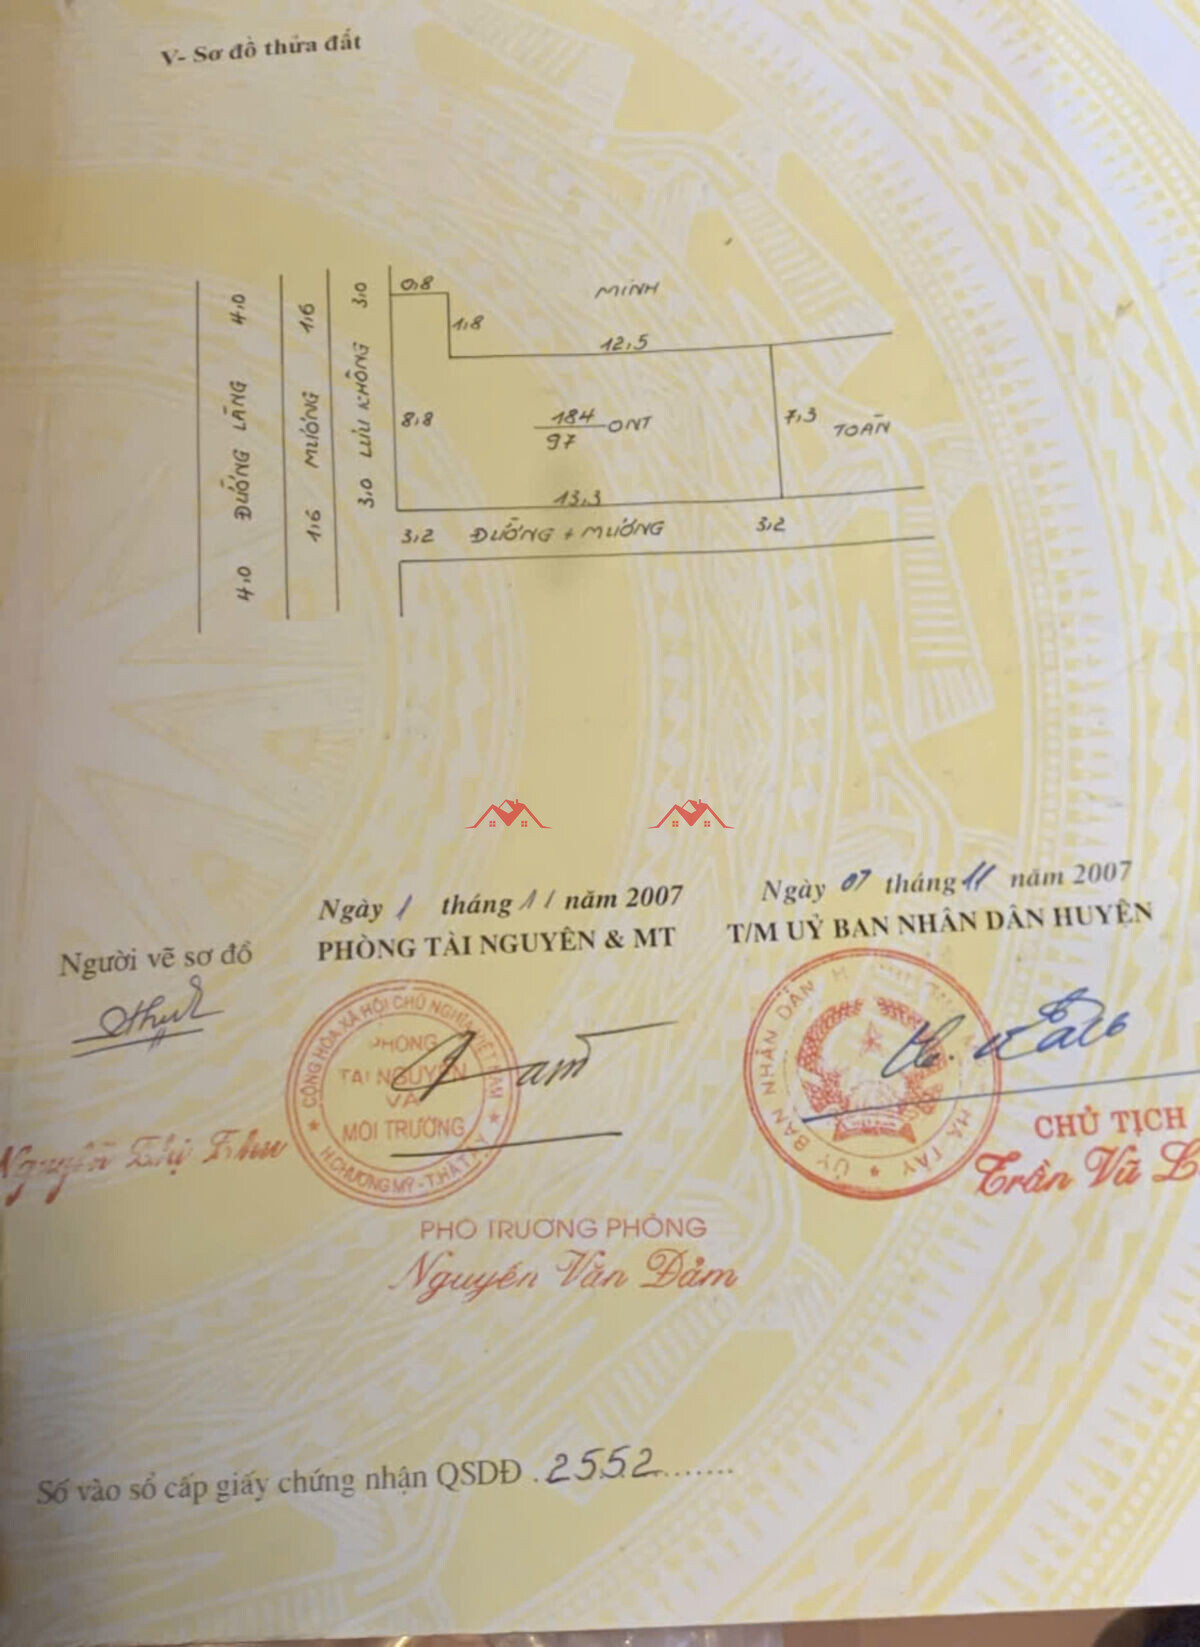 V- Sơ đồ thửa đất
0,8
MINH
1,8
12,5
4,0 ĐƯỜNG LÀNG 4,0
1,6 MƯƠNG 1,6
3,0 LƯU KHÔNG 3,0
8,8
184
97
ONT
7,3
TOÀN
13,3
3,2 ĐƯỜNG + MƯƠNG 3,2
Ngày 1 tháng 11 năm 2007
Ngày 07 tháng 11 năm 2007
Người vẽ sơ đồ
PHÒNG TÀI NGUYÊN & MT
T/M UỶ BAN NHÂN DÂN HUYỆN
CỘNG HÒA XÃ HỘI CHỦ NGHĨA VIỆT NAM
PHÒNG
TÀI NGUYÊN
VÀ
MÔI TRƯỜNG
H.CHƯƠNG MỸ - T.HÀ TÂY
ỦY BAN NHÂN DÂN H
HÀ TÂY
Nguyễn Thị Thu
CHỦ TỊCH
Trần Vũ L
PHÓ TRƯỞNG PHÒNG
Nguyễn Văn Đảm
Số vào sổ cấp giấy chứng nhận QSDĐ . 2552.......